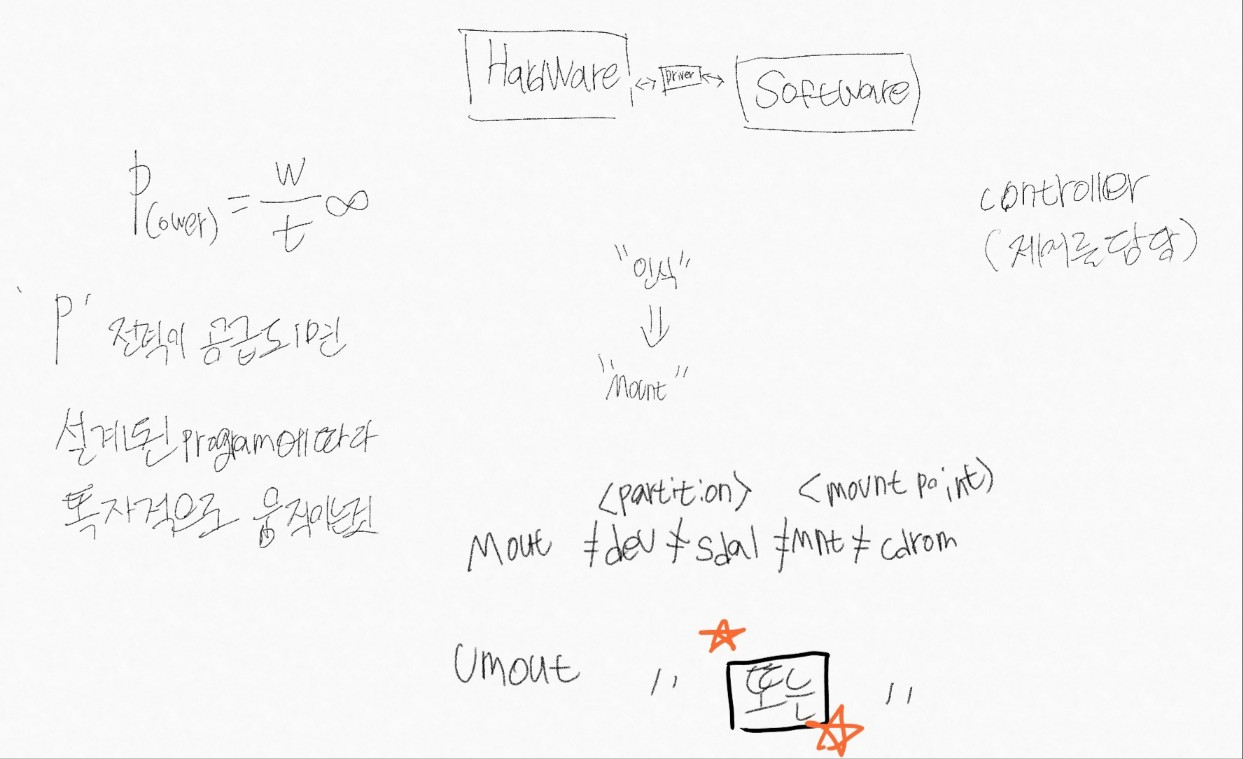 HardWare ↔ Driver ↔ Software
P(ower) = w/t ∞
controller
(제어를 담당)
"인식"
⇓
"Mount"
'P' 전력이 공급되면
설계된 program에 따라
독자적으로 움직이는것
<partition> <mount point)
Mout ≠dev ≠sda1 ≠Mnt ≠ cdrom
Umout " 또는 "